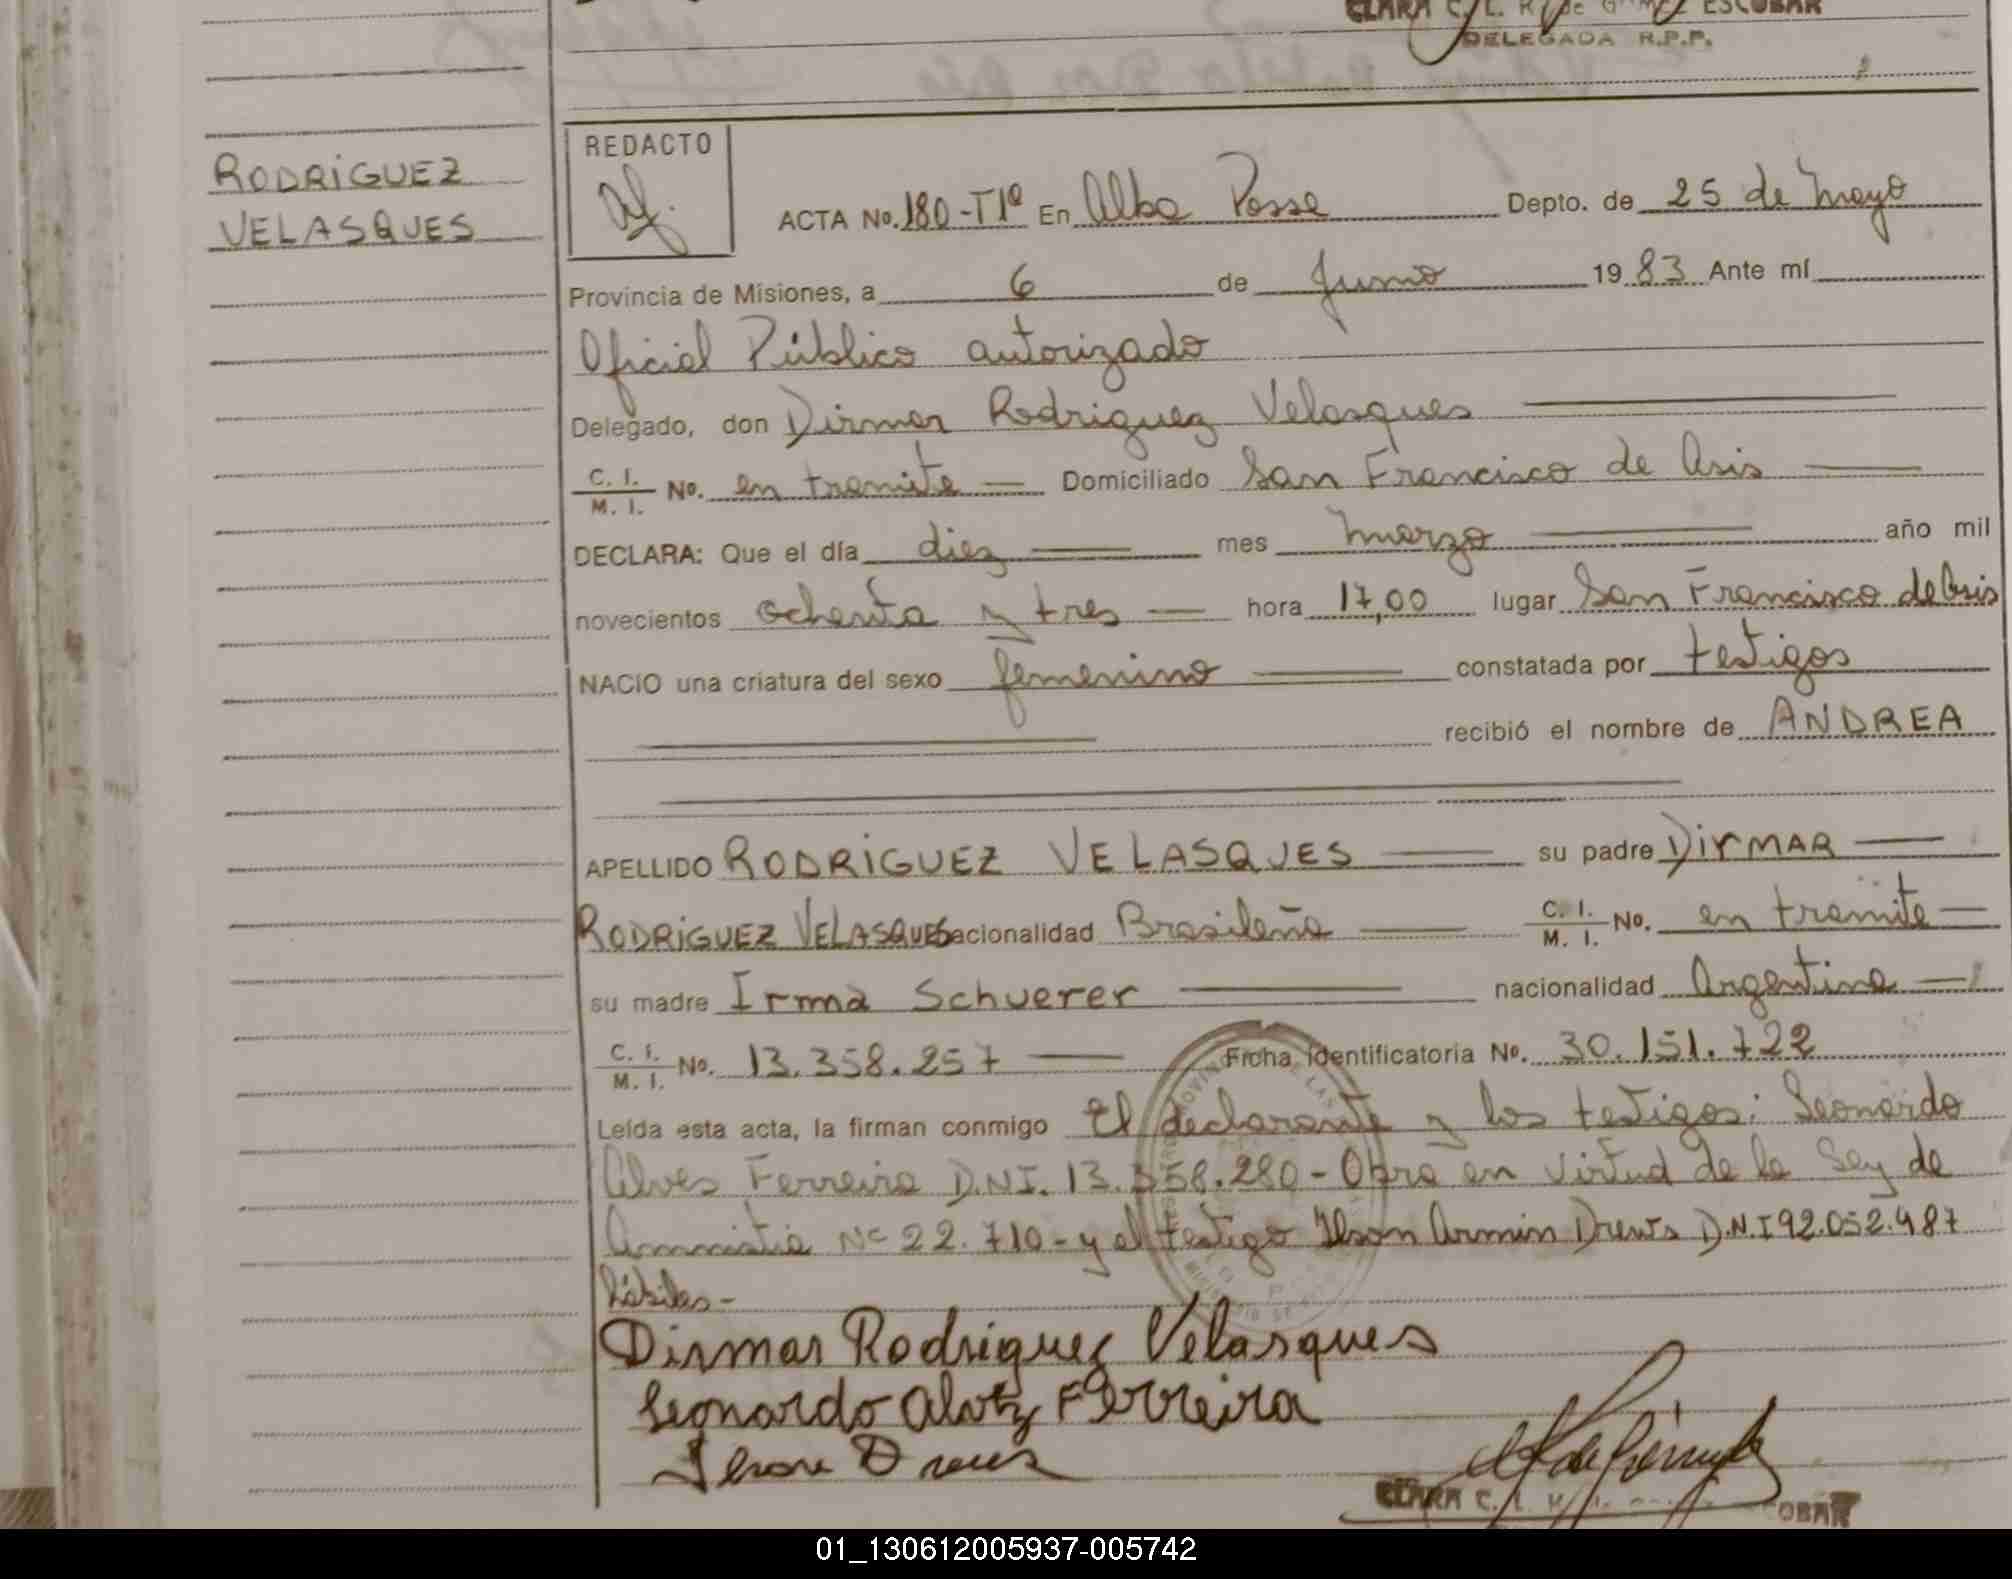 CLARA C. L. R. de G ESCOBAR
DELEGADA R.P.P.
RODRIGUEZ
VELASQUES
REDACTO
ACTA No. 180-T1º En Alba Posse Depto. de 25 de Mayo
Provincia de Misiones, a 6 de Junio 1983 Ante mí
Oficial Público autorizado
Delegado, don Dirmar Rodriguez Velasques
C. I. / M. I. No. en tramite Domiciliado San Francisco de Asis
DECLARA: Que el día diez mes marzo año mil
novecientos ochenta y tres hora 17,00 lugar San Francisco de Asis
NACIO una criatura del sexo femenino constatada por testigos
recibió el nombre de ANDREA
APELLIDO RODRIGUEZ VELASQUES su padre DIRMAR
RODRIGUEZ VELASQUES nacionalidad Brasileña C. I. / M. I. No. en tramite
su madre Irma Schuerer nacionalidad Argentina
C. I. / M. I. No. 13.358.257 Ficha Identificatoria No. 30.151.722
Leída esta acta, la firman conmigo El declarante y los testigos: Leonardo
Alves Ferreira D.N.I. 13.358.280 - Obra en virtud de la Ley de
Amnistia Nº 22.710 - y el testigo Ilson Armin Drews D.N.I 92.052.487
hábiles -
Dirmar Rodriguez Velasques
Leonardo Alvez Ferreira
CLARA C. L. OBAR
01_130612005937-005742